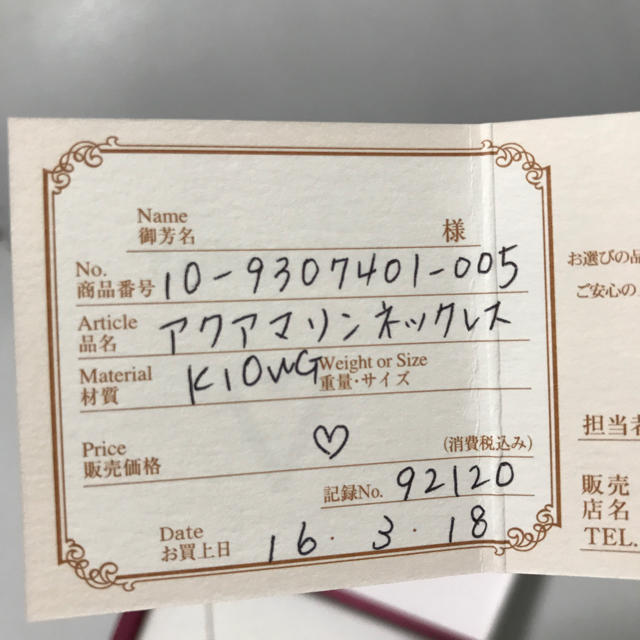 Name
御芳名 様
No.
商品番号 10-9307401-005
Article
品名 アクアマリンネックレス
Material Weight or Size
材質 K10WG 重量・サイズ
Price
販売価格 ♡ (消費税込み)
記録No. 92120
Date
お買上日 16.3.18
お選びの品
ご安心の
担当者
販売
店名
TEL.